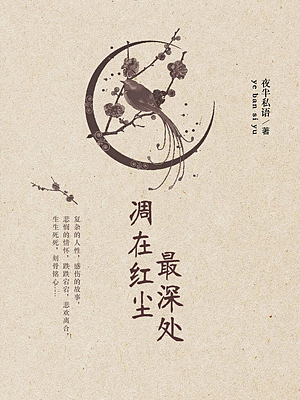 夜半私语/著
ye ban si yu
凋在红尘
最深处
复杂的人性，感伤的故事，
悲悯的情怀，跌跌宕宕，悲欢离合，
生生死死，刻骨铭心……